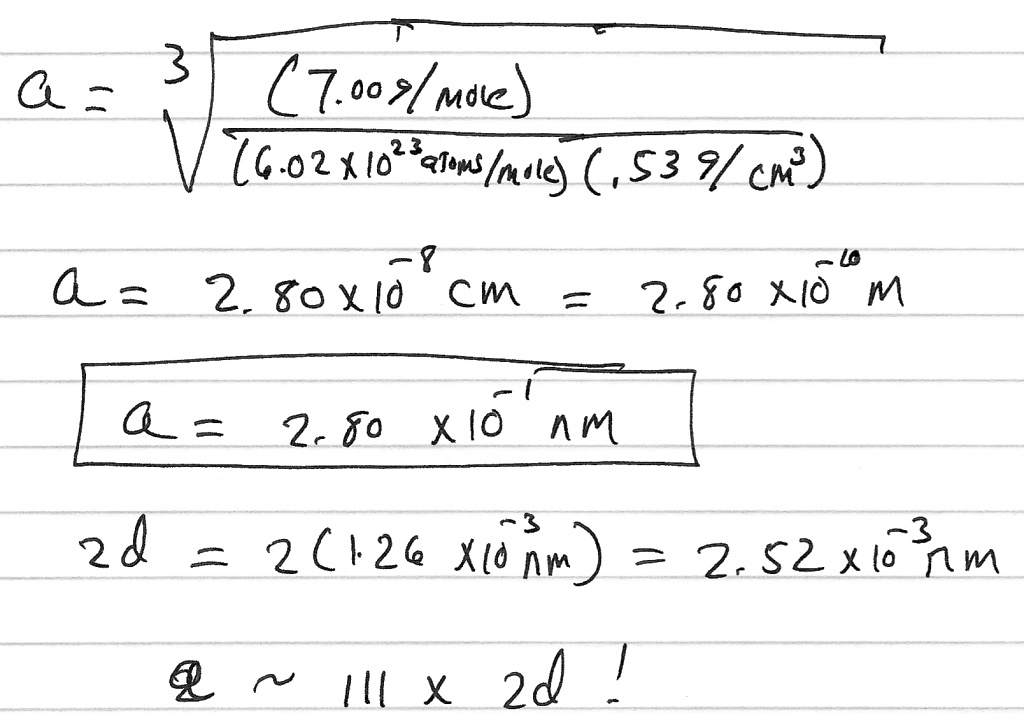 a = ∛
(7.00g/mole)
(6.02 x 10²³ atoms/mole) (.53 g/cm³)
a = 2.80 x 10⁻⁸ cm = 2.80 x 10⁻¹⁰ m
a = 2.80 x 10⁻¹ nm
2d = 2(1.26 x 10⁻³ nm) = 2.52 x 10⁻³ nm
a ~ 111 x 2d !